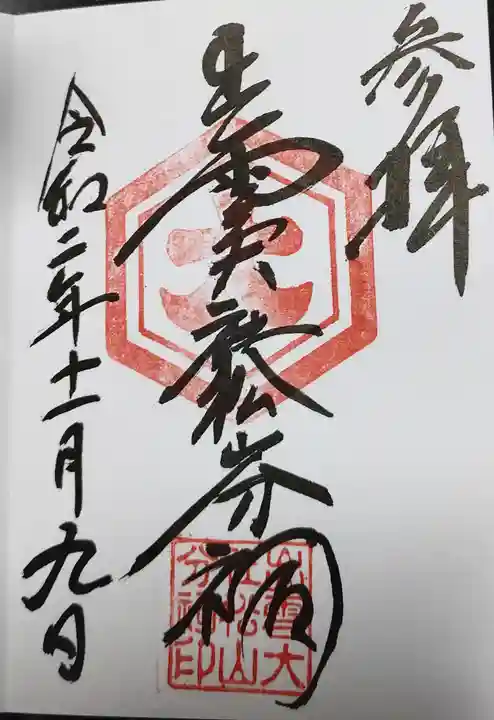 参拝
出雲大社松山分祠
令和二年十一月九日
大
出雲大
社松山
分祠印